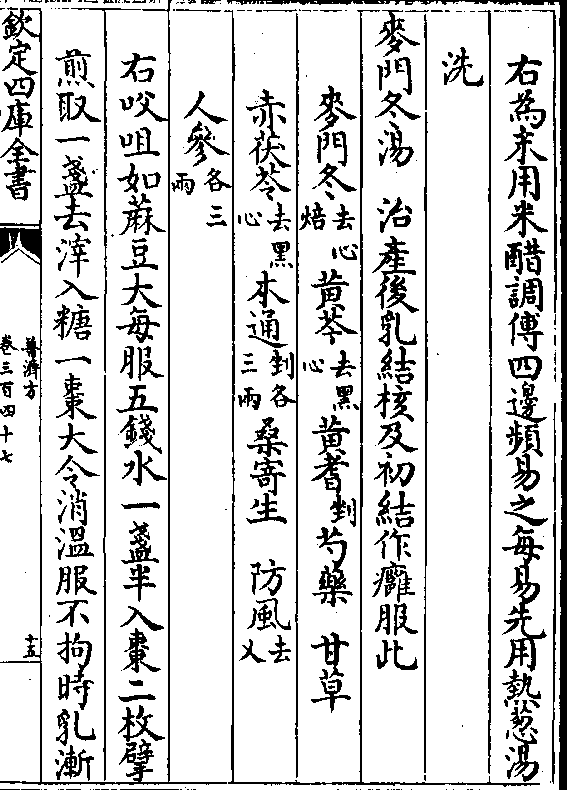 右為末用米醋調傅四邊頻易之每易先用熱葱湯
洗
麥門冬湯　治產後乳結核及初結作癰服此
麥門冬去心焙　黄芩去黑心　黄耆剉　芍藥　甘草
赤茯苓去黑心　木通剉各三兩　桑寄生　防風去乂
人參各三兩
右㕮咀如蔴豆大每服五錢水一盞半入棗二枚擘
煎取一盞去滓入糖一棗大令消溫服不拘時乳漸
欽定四庫全書
普濟方
卷三百四十七
十五